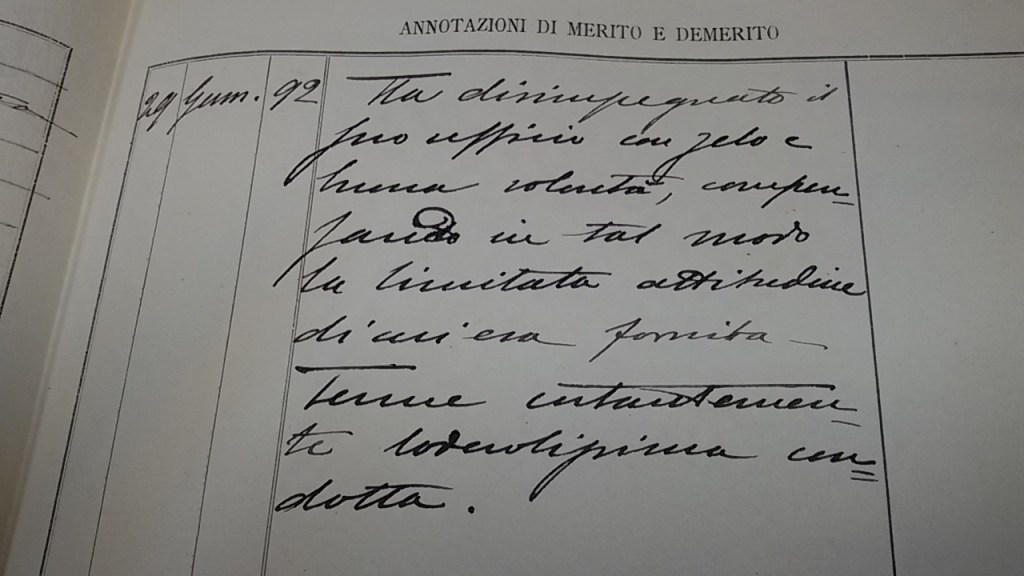 ANNOTAZIONI DI MERITO E DEMERITO
29 Genn. 92 Ha disimpegnato il
suo ufficio con zelo e
buona volontà, compen=
sando in tal modo
la limitata attitudine
di cui era fornita –
Tenne costantemen-
te lodevolissima con=
dotta.